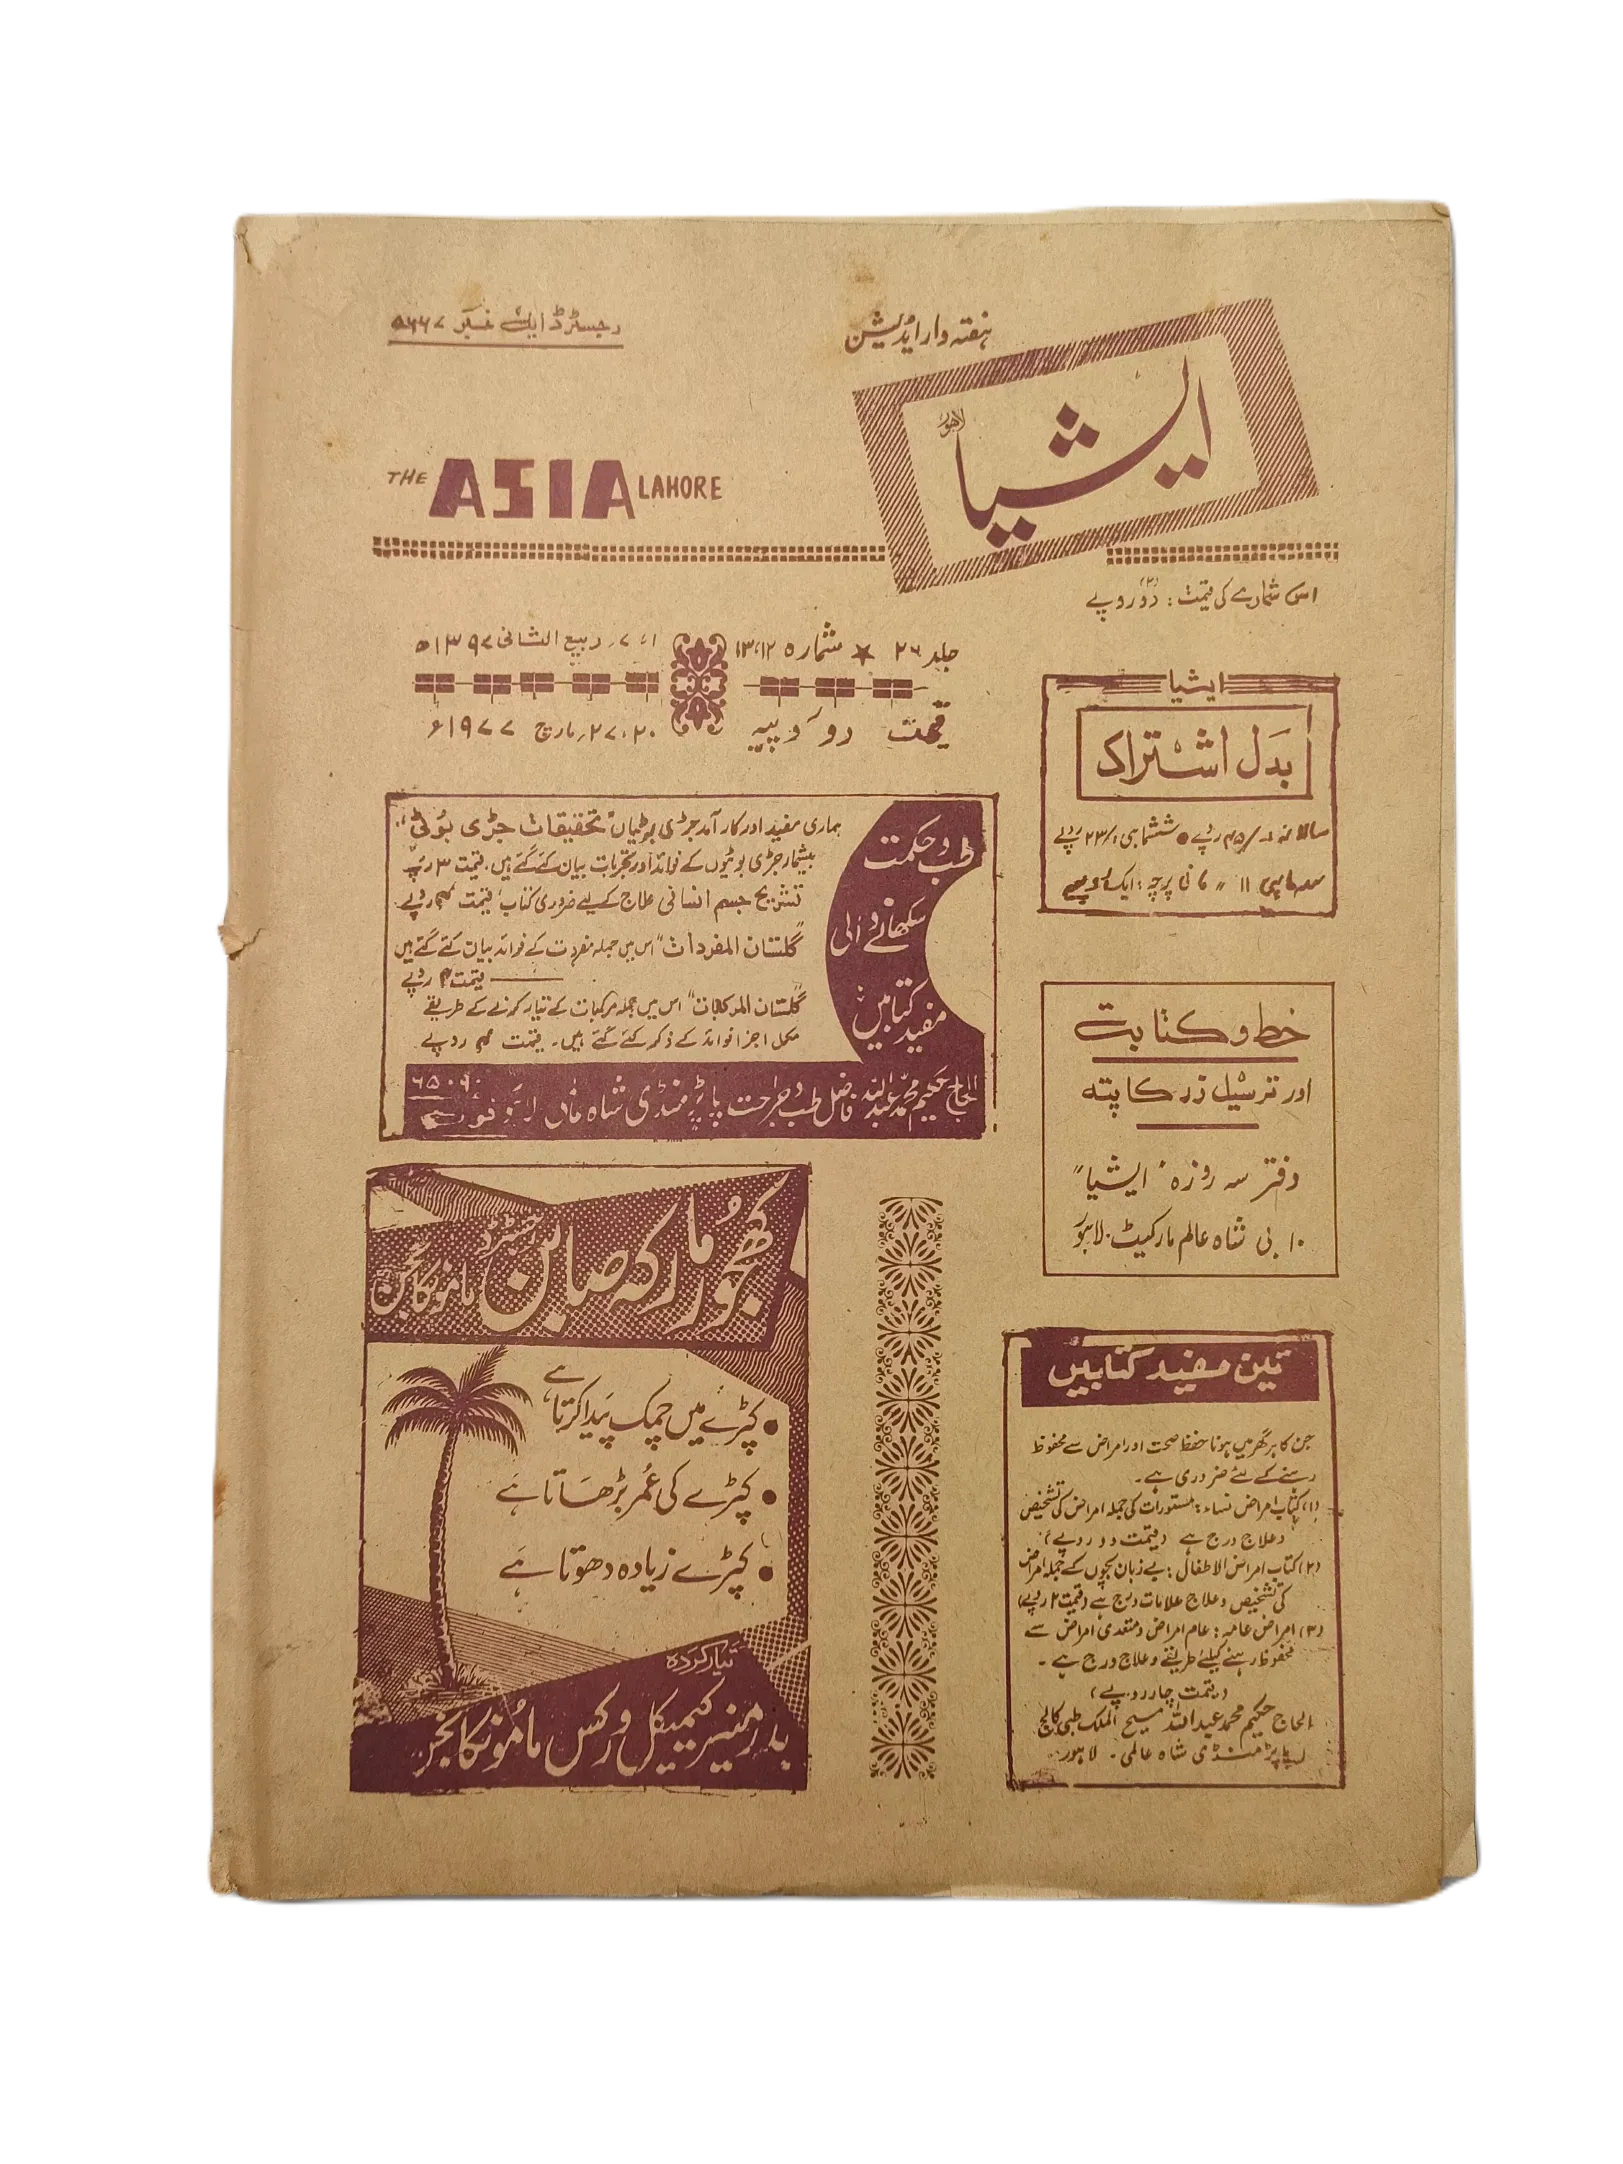 رجسٹرڈ ایل نمبر ۵۶۶۷
ہفتہ وار ایڈیشن
ایشیا
لاہور
THE ASIA LAHORE
اس شمارے کی قیمت : دو (۲) روپے
جلد ۲۶ ★ شمارہ ۱۲، ۱۳
۱، ۷ ربیع الثانی ۱۳۹۷ھ
قیمت دو روپیہ
۲۰، ۲۷ مارچ ۱۹۷۷ء
ایشیا
بدل اشتراک
سالانہ /۴۵ روپے • ششماہی /۲۳ روپے
سہ ماہی ۱۱ " فی پرچہ : ایک روپیہ
طب و حکمت
سکھانے والی
مفید کتابیں
ہماری مفید اور کار آمد جڑی بوٹیاں "تحقیقات جڑی بوٹی"
بیشمار جڑی بوٹیوں کے فوائد اور تجربات بیان کئے گئے ہیں۔ قیمت ۳ روپے
تشریح جسم انسانی علاج کے لیے ضروری کتاب، قیمت ۴ روپے
"گلستان المفردات" اس میں جملہ مفردات کے فوائد بیان کئے گئے ہیں
قیمت ۴ روپے
"گلستان المرکبات" اس میں جملہ مرکبات کے تیار کرنے کے طریقے
مکمل اجزا فوائد کے ذکر کئے گئے ہیں۔ قیمت ۴ روپے
الحاج حکیم محمد عبداللہ فاضل طب و جراحت پاپڑ منڈی شاہ عالمی لاہور فون ۶۵۰۹۰
خط و کتابت
اور ترسیل زر کا پتہ
دفتر سہ روزہ "ایشیا"
۱۰ بی شاہ عالم مارکیٹ۔ لاہور
کھجور مارکہ صابن رجسٹرڈ ماموں کانجن
• کپڑے میں چمک پیدا کرتا ہے
• کپڑے کی عمر بڑھاتا ہے
• کپڑے زیادہ دھوتا ہے
تیار کردہ
بدر منیر کیمیکل ورکس ماموں کانجن
تین مفید کتابیں
جن کا ہر گھر میں ہونا حفظ صحت اور امراض سے محفوظ
رہنے کے لئے ضروری ہے۔
(۱) کتاب امراض نساء : مستورات کی جملہ امراض کی تشخیص
و علاج درج ہے (قیمت دو روپے)
(۲) کتاب امراض الاطفال : بے زبان بچوں کے جملہ امراض
کی تشخیص و علاج علامات درج ہے (قیمت ۲ روپے)
(۳) امراض عامہ : عام امراض و متعدی امراض سے
محفوظ رہنے کیلئے طریقے و علاج درج ہے۔
(قیمت چار روپے)
الحاج حکیم محمد عبداللہ مسیح الملک طبی کالج
پاپڑ منڈی شاہ عالمی۔ لاہور